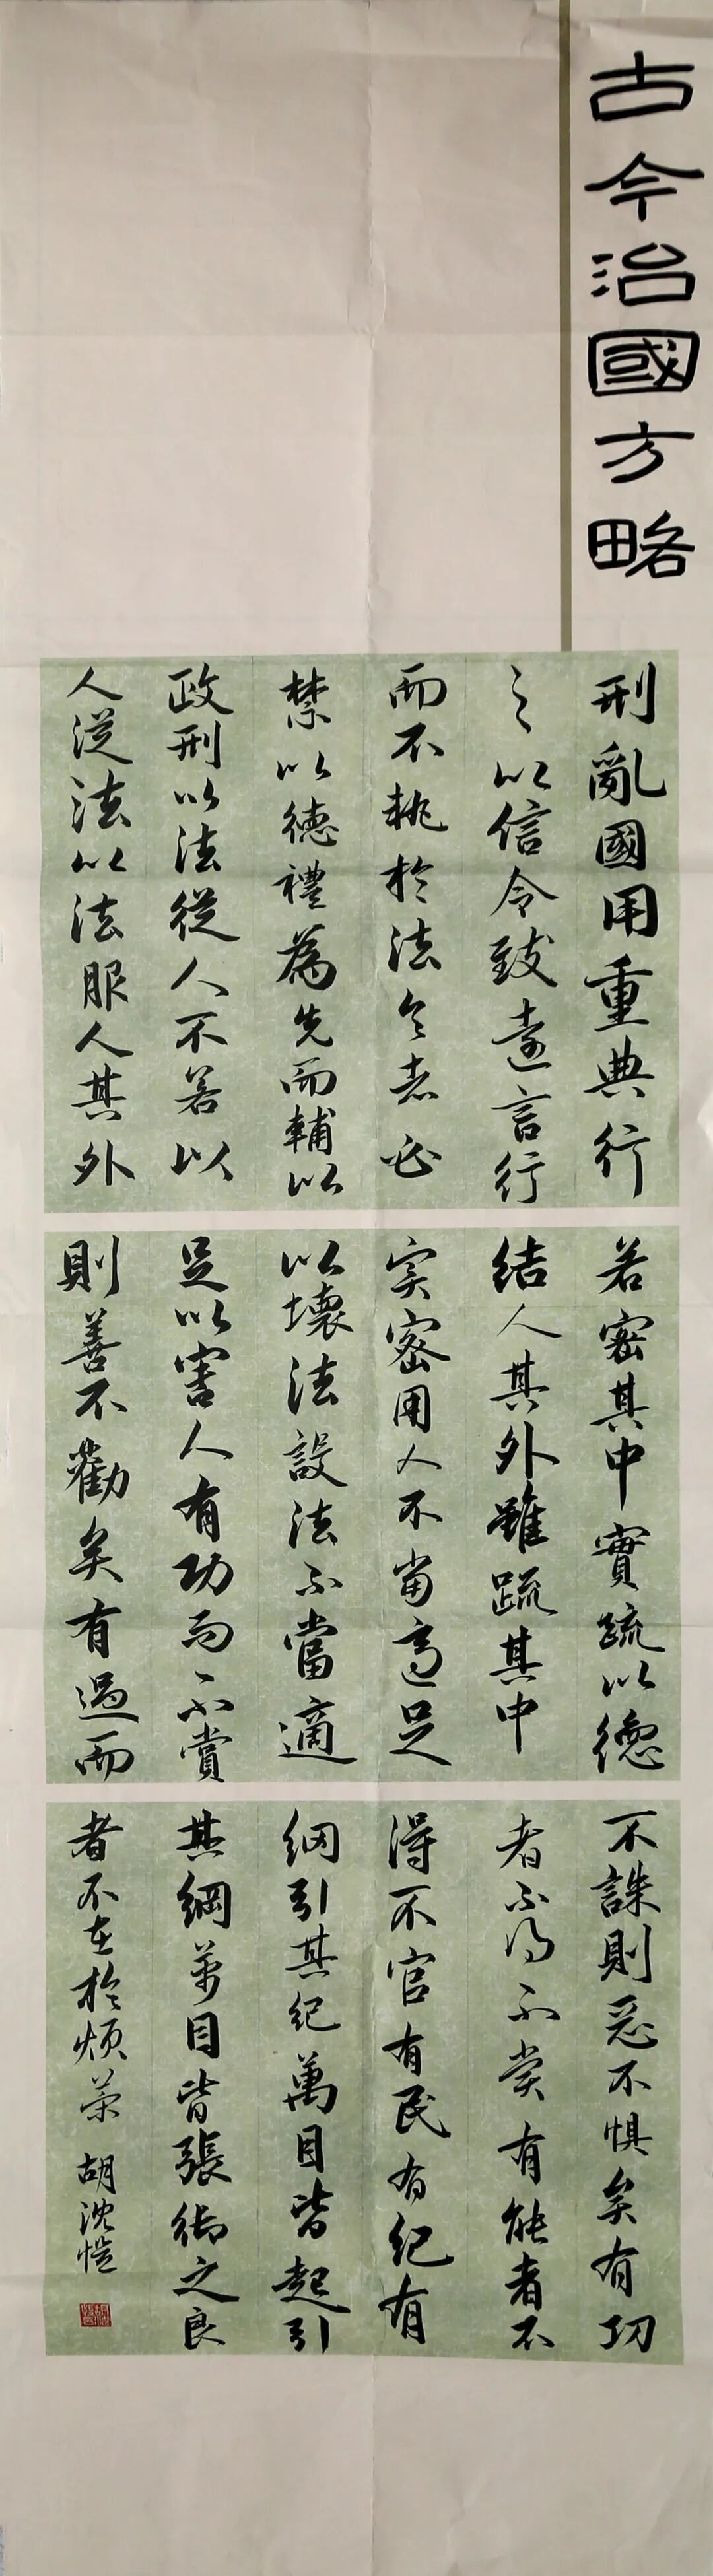 古今治國方略
刑亂國用重典行
之以信令致遠言行
而不桃於法令者必
禁以德禮為先而輔以
政刑以法從人不若以
人從法以法服人其外
若密其中實疏以德
结人其外雖疏其中
实密用人不當適足
以壞法設法不當適
足以害人有功而不賞
則善不勸矣有過而
不誅則惡不惧矣有功
者不得不赏有能者不
得不官有民有纪有
纲引其纪萬目皆起引
其綱萬目皆張御之良
者不在於烦荣 胡沈愷